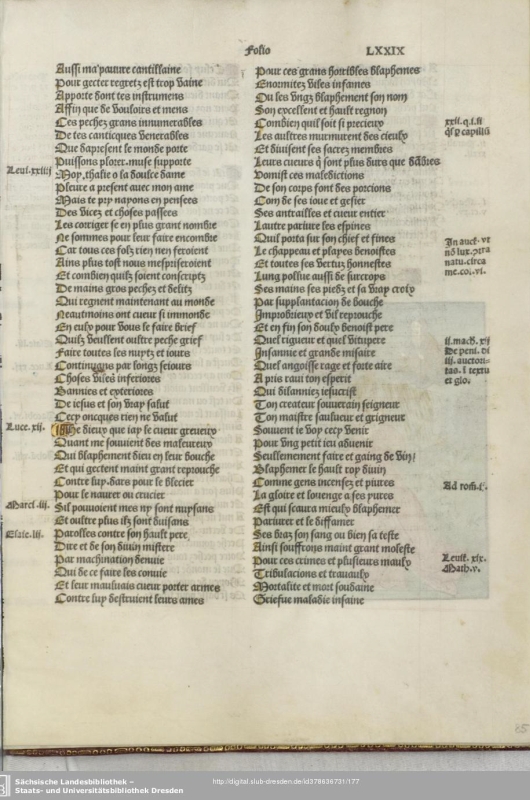 Folio LXXIX
Aussi ma pauure cantillaine
Pour gecter regretz est trop vaine
Apporte dont tes instrumens
Affin que de vouloirs et mens
Ces pechez grans innumerables
De tes canticques venerables
Que dapresent le monde porte
Puissons plorer. muse supporte
Leui. xxiiij
Moy, thalie o la doulce dame
Pleure a present auec mon ame
Mais te pry nayons en pensees
Des vicez et choses passees
Les corriger se en plus grant nombre
Ne sommes pour leur faire encombre
Car tous ces folz rien nen feroient
Ains plus tost nous mespriseroient
Et combien quilz soient conscriptz
De mains gros pechez et delitz
Qui regnent maintenant au monde
Neautmoins ont cueur si immonde
En eulx pour vous le faire brief
Quilz veullent oultre peche grief
Faire toutes les nuytz et iours
Continuans par longz seiours
Choses viles inferiores
Bannies et exteriores
De iesus et son vray salut
Cecy oncques rien ne valut
Luce. xij.
He dieux que iay le cueur greueux
Quant me souuient des maleureux
Qui blaphement dieu en leur bouche
Et qui gectent maint grant reprouche
Contre luy. dars pour le blecier
Pour le naurer ou crucier
Marci. iij.
Sil pouuoient mes ny sont nuysans
Et oultre plus ilz sont duisans
Esaie. lii.
Parolles contre son hault pere
Dire et de son diuin mistere
Par machination denuie
Qui de ce faire les conuie
Et leur mauluais cueur porter armes
Contre luy destruient leurs ames
Pour ces grans horribles blaphemes
Enormitez viles infames
Ou les vngz blaphement son nom
Son excellent et hault regnon
xxii. q. i. si
Combien quil soit si precieux
qs p capillu
Les aultres murmurent des cieulx
Et diuisent ses sacrez membres
Leurs cueurs q sont plus durs que
Vomist ces maledictions
De son corps font des porcions
Com de ses ioue et gesier
Ses antrailles et cueur entier
Lautre pariure les espines
Quil porta sur son chief et fines
In auct. vt
Le chappeau et playes benoistes
Et toutes ses vertuz honnestes
natu. circa
Lung pollue aussi de surcrops
me. coi. vi.
Ses mains ses piedz et sa vray croix
Par supplantacion de bouche
Improbieux et vil reprouche
Et en fin son doulx benoist pere
ii. mach. xv
Quel rigueur et quel vitupere
De peni. di
Insannie et grande misaire
iii. auctori-
Quel angoisse rage et forte aire
tas. i textu
A pris raui ton esperit
et glo.
Qui dilanniez iesucrist
Ton createur souuerain seigneur
Ton maistre saulueur et grigneur
Souuent ie voy cecy venir
Pour vng petit ieu aduenir
Seullement faire et gaing de vin/
Blaphemer le hault roy diuin
Comme gens incensez et piures
Ad rom. i.
La gloire et louenge a ses yures
Est qui scaura mieulx blaphemer
Pariurer et le diffamer
Ses bras son sang ou bien sa teste
Ainsi souffrons maint grant moleste
Leuit. xix.
Pour ces crimes et plusieurs maulx
Math. v.
Tribulacions et trauaulx
Mortalite et mort soudaine
Griefue maladie insaine
Sächsische Landesbibliothek –
Staats- und Universitätsbibliothek Dresden
http://digital.slub-dresden.de/id378636731/177